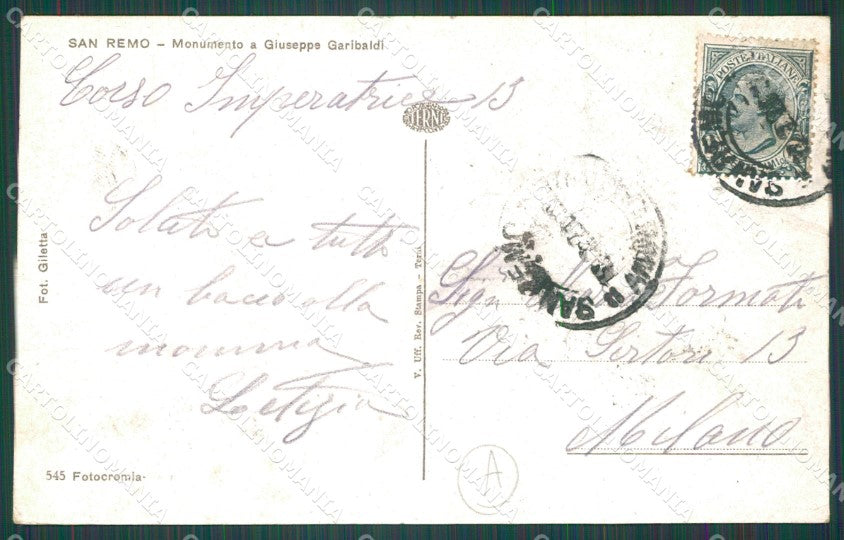 SAN REMO – Monumento a Giuseppe Garibaldi
Corso Imperatrice 13
TERNI
Saluti a tutti
un bacio alla
mamma
Letizia
Fot. Giletta
545 Fotocromia-
V. Uff. Rev. Stampa - Terni
POSTE ITALIANE
SANREMO
Formati
Via Sertori 13
Milano
A
CARTOLINOMANIA